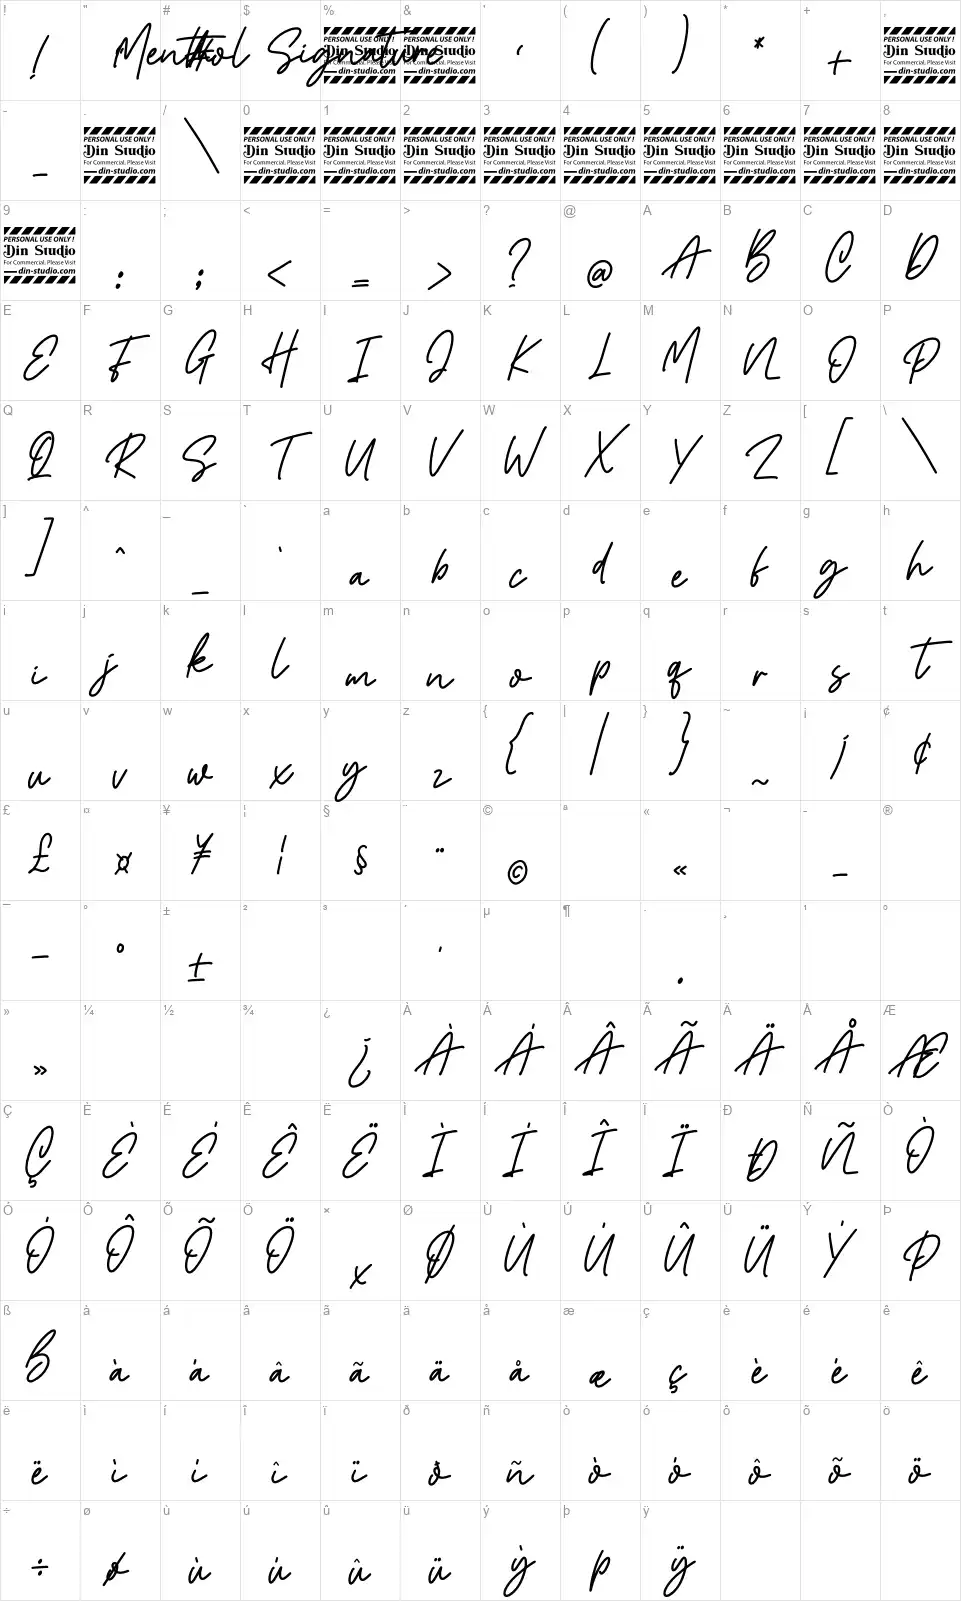 ! " # $ % & ' ( ) * + ,
! Menttol Signature ' ( ) * +
PERSONAL USE ONLY !
Din Studio
For Commercial, Please Visit
din-studio.com
- . / 0 1 2 3 4 5 6 7 8
- \
PERSONAL USE ONLY !
Din Studio
For Commercial, Please Visit
din-studio.com
9 : ; < = > ? @ A B C D
PERSONAL USE ONLY !
Din Studio
For Commercial, Please Visit
din-studio.com
: ; < = > ? @ A B C D
E F G H I J K L M N O P
E F G H I J K L M N O P
Q R S T U V W X Y Z [ \
Q R S T U V W X Y Z [ \
] ^ _ ` a b c d e f g h
] ^ _ ` a b c d e f g h
i j k l m n o p q r s t
i j k l m n o p q r s t
u v w x y z { | } ~ ¡ ¢
u v w x y z { | } ~ ¡ ¢
£ ¤ ¥ ¦ § ¨ © ª « ¬ - ®
£ ¤ ¥ ¦ § ¨ © « -
¯ ° ± ² ³ ´ µ ¶ · ¸ ¹ º
¯ ° ± ´ ·
» ¼ ½ ¾ ¿ À Á Â Ã Ä Å Æ
» ¿ À Á Â Ã Ä Å Æ
Ç È É Ê Ë Ì Í Î Ï Ð Ñ Ò
Ç È É Ê Ë Ì Í Î Ï Ð Ñ Ò
Ó Ô Õ Ö × Ø Ù Ú Û Ü Ý Þ
Ó Ô Õ Ö × Ø Ù Ú Û Ü Ý Þ
ß à á â ã ä å æ ç è é ê
ß à á â ã ä å æ ç è é ê
ë ì í î ï ð ñ ò ó ô õ ö
ë ì í î ï ð ñ ò ó ô õ ö
÷ ø ù ú û ü ý þ ÿ
÷ ø ù ú û ü ý þ ÿ